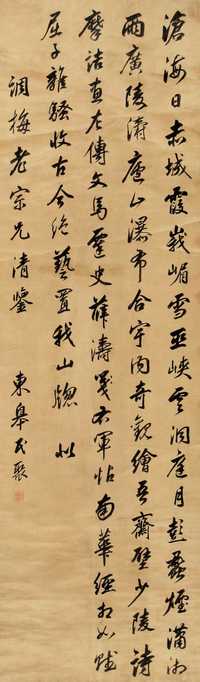 滄海日赤城霞峩嵋雪巫峽雲洞庭月彭蠡煙瀟湘
雨廣陵濤廬山瀑布合宇內奇觀繪吾齋壁少陵詩
摩詰畫左傳文馬遷史薛濤箋右軍帖南華經相如賦
屈子離騷收古今絕藝置我山牕 似
調梅老宗兄清鑒 東皋